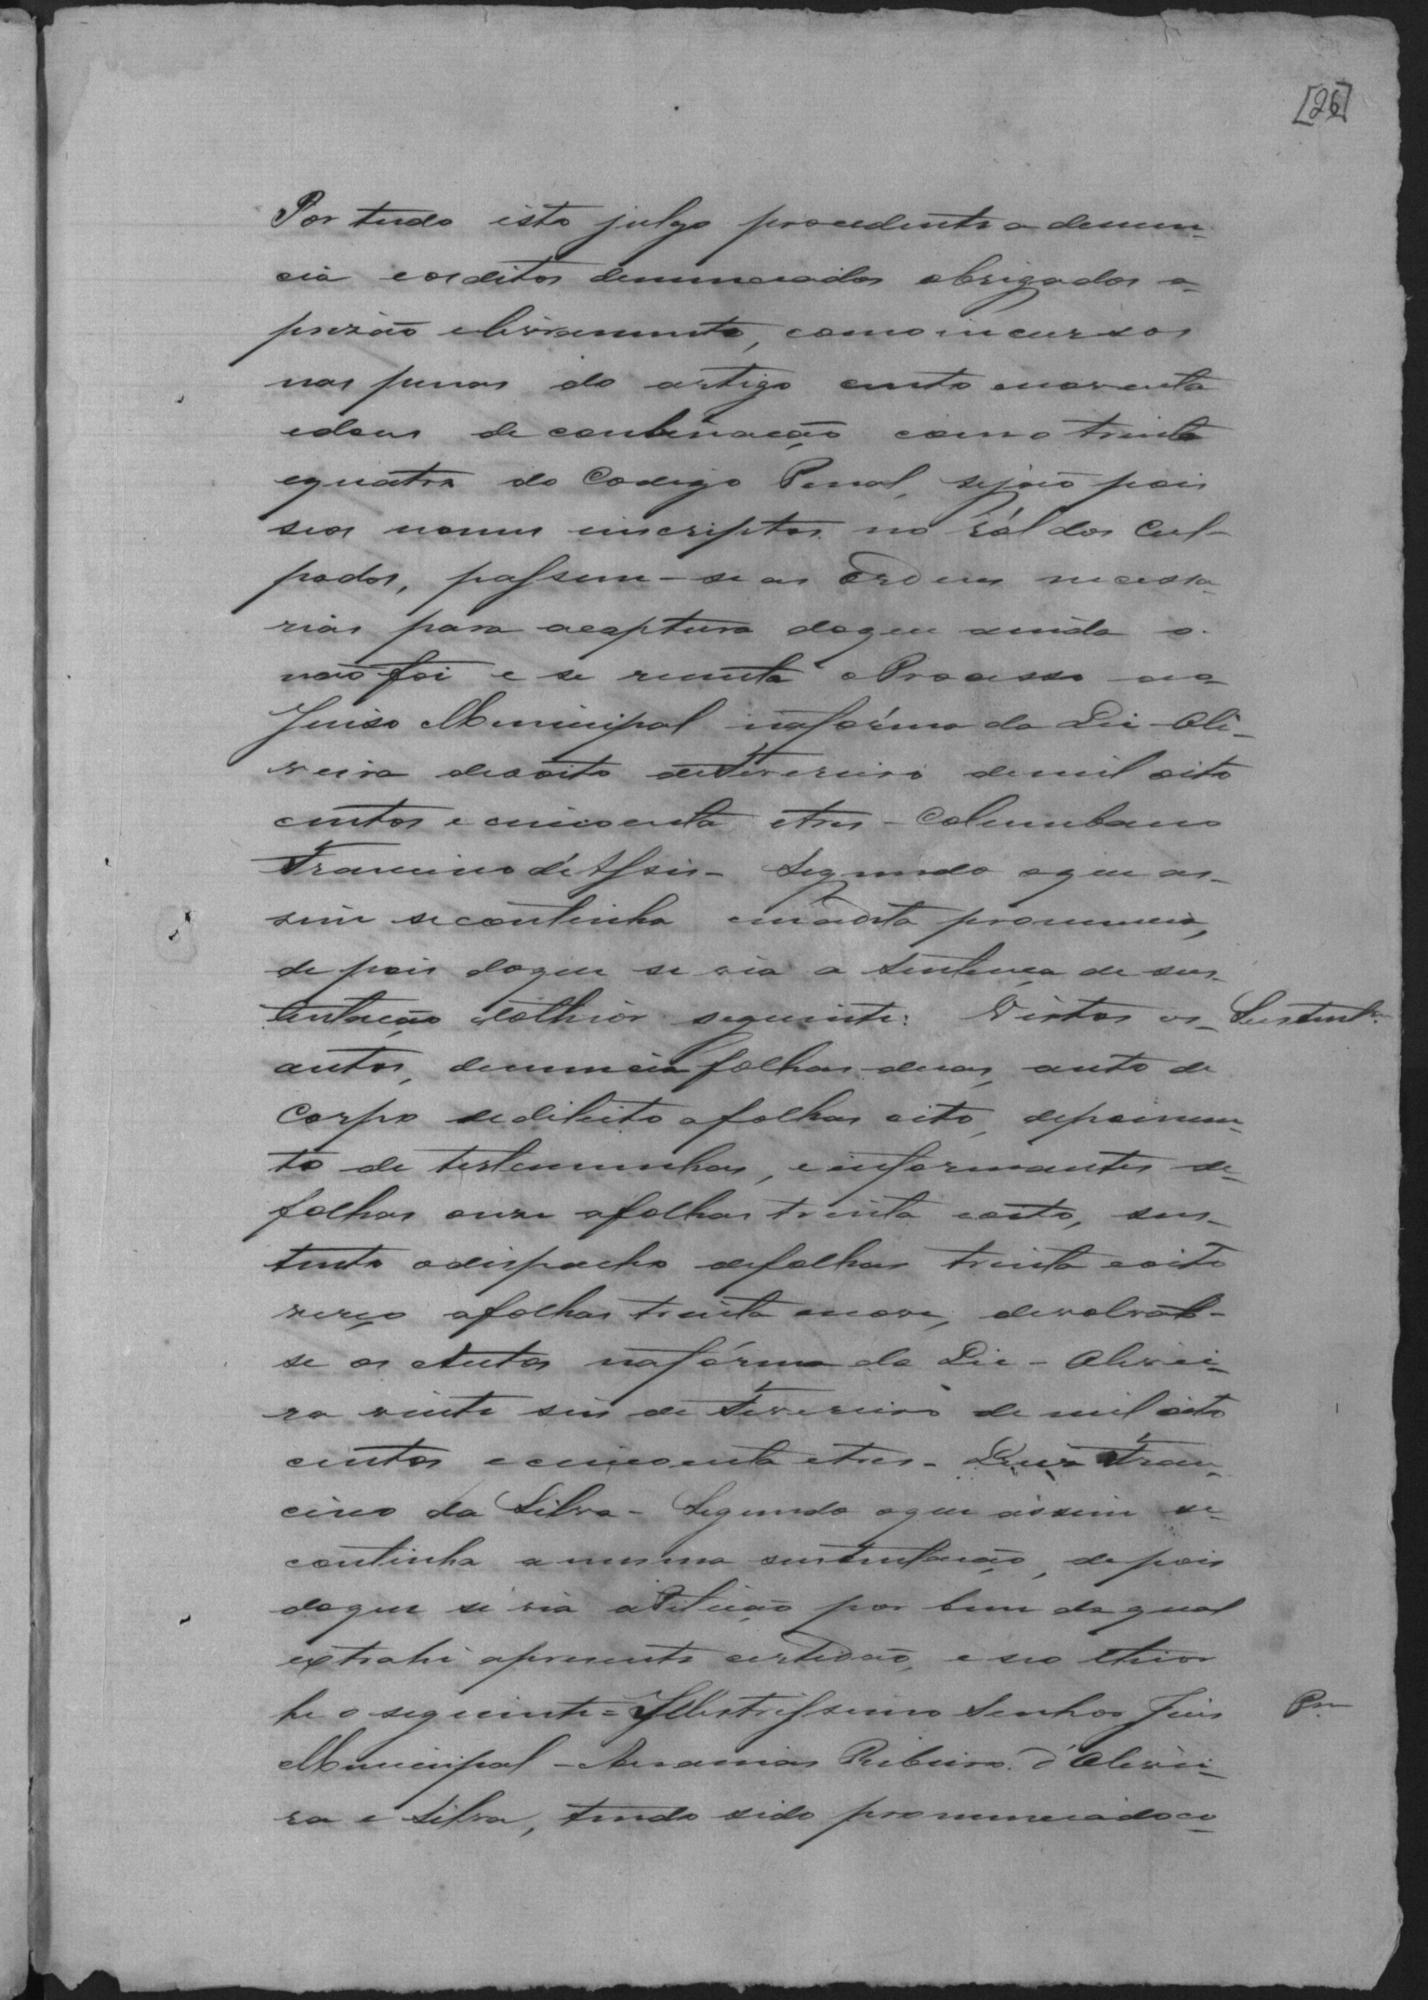 [26]
Por tudo isto julgo procedente a denun-
cia e os ditos denunciados obrigados a
prizão e livramento, como incursos
nas penas do artigo cento e noventa
e dous de combinação com o trinta
e quatro do Codigo Penal, sejão pois
seos nomes inscriptos no ról dos Cul-
pados, passem-se as Ordens necessa-
rias para a captura do que ainda o
não foi e se remeta o Processo ao
Juiso Municipal na fórma da Lei - Oli-
veira desoito de Fevereiro de mil oito
centos e cincoenta e tres - Columbano
Francino d'Assis - Segundo o que as-
sim se continha em a dita pronuncia,
depois do que se via a Sentença de sus-
tentação do theor seguinte: Vistos os
Sustent.am
autos, denuncia folhas duas, auto de
Corpo de delicto a folhas oito, depoimen-
to de testemunhas, e informantes de
folhas onze a folhas trinta e oito, sus-
tento o dispacho de folhas trinta e oito
verço a folhas trinta e nove, devolvão-
se os Autos na fórma da Lei - Olivei-
ra vinte seis de Fevereiro de mil oito
centos e cincoenta e tres - Luis Fran-
cino da Silva - Segundo o que assim se
continha a mesma sustentação, depois
do que se via a Petição por bem da qual
extrahi a presente certidão, e seo theor
he o seguinte = Illustrissimo Senhor Juis
Pm
Municipal - Ananias Ribeiro d'Olivei-
ra e Silva, tendo sido pronunciado co-